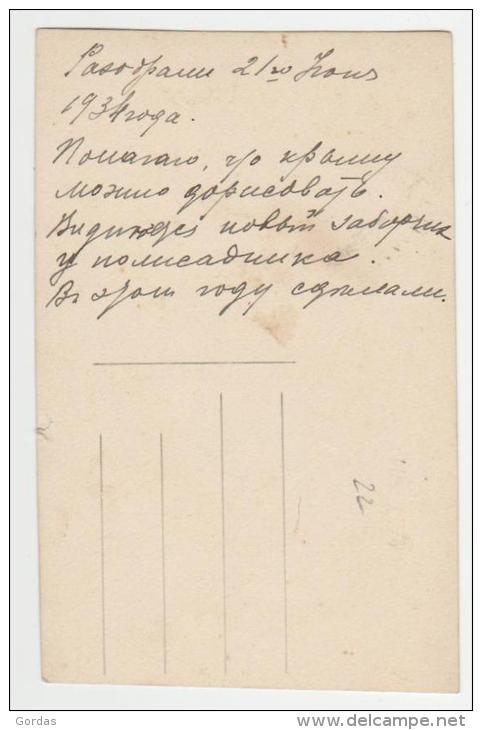 Разобрали 21го Июня
1934 года.
Полагаю, что крышу
можно дорисовать.
Виднѣется новый заборчик
у полисадника.
В этом году сдѣлали.
22
Gordas
www.delcampe.net